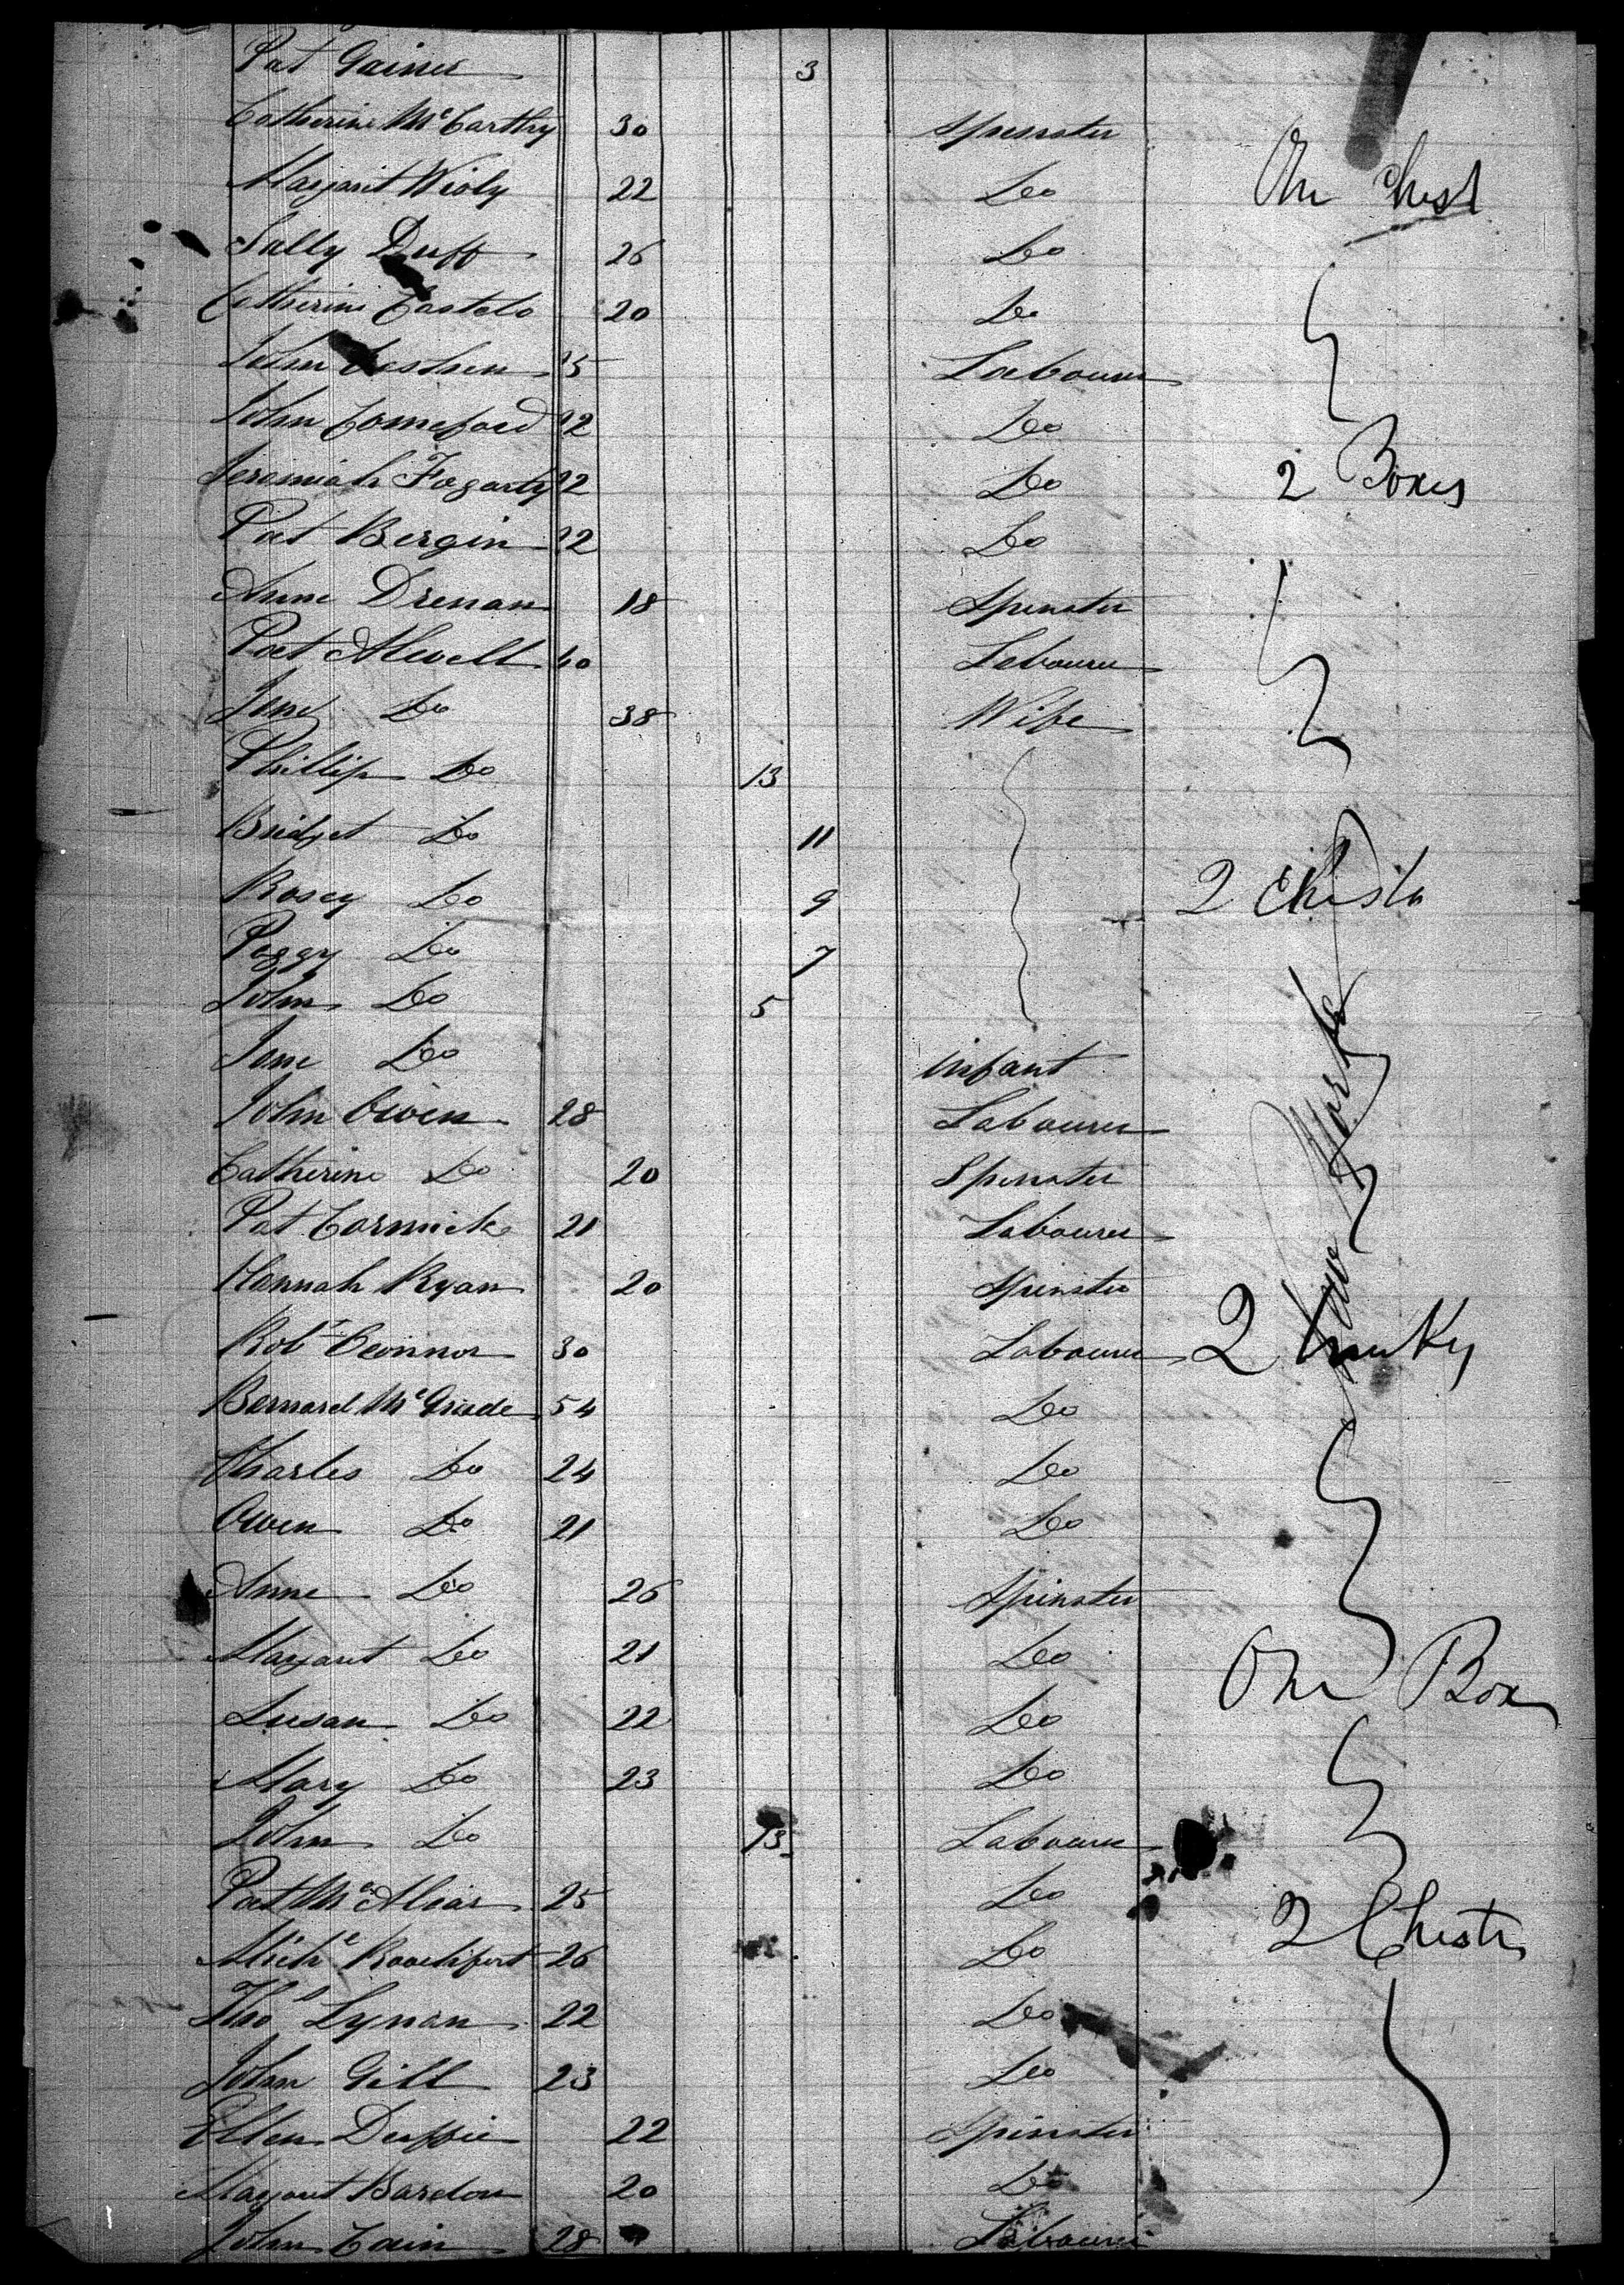 Pat Gainer 3
Catherine McCarthy 30 Spinster
Margarit 22 Do One Chest
Sally Duff 26 Do
Catherine Costelo 20 Do
John Labourer
John Comeford 22 Do
Jeremiah Fogarty 22 Do 2 Boxes
Pat Bergin 22 Do
Anne Drenan 18 Spinster
Pat 40 Labourer
Jane Do 38 Wife
Phillip Do 13
Bridget Do 11
Rosey Do 9 2 Chests
Peggy Do 7
John Do 5
Jane Do infant
John Owen 28 Labourer
Catherine Do 20 Spinster
Pat Cormick 21 Labourer
Hannah Ryan 20 Spinster
Robt Connor 30 Labourer 2
Bernard McGrade 54 Do
Charles Do 24 Do
Owen Do 21 Do
Anne Do 26 Spinster
Margaret Do 21 Do One Box
Susan Do 22 Do
Mary Do 23 Do
John Do 13 Labourer
Pat 25 Do 2 Chests
Michl Roachfort 26 Do
Thos Lynan 22 Do
John Gill 23 Do
Ellen Duffie 22 Spinster
Margaret Bardon 20 Do
John Cain 28 Labourer
New York